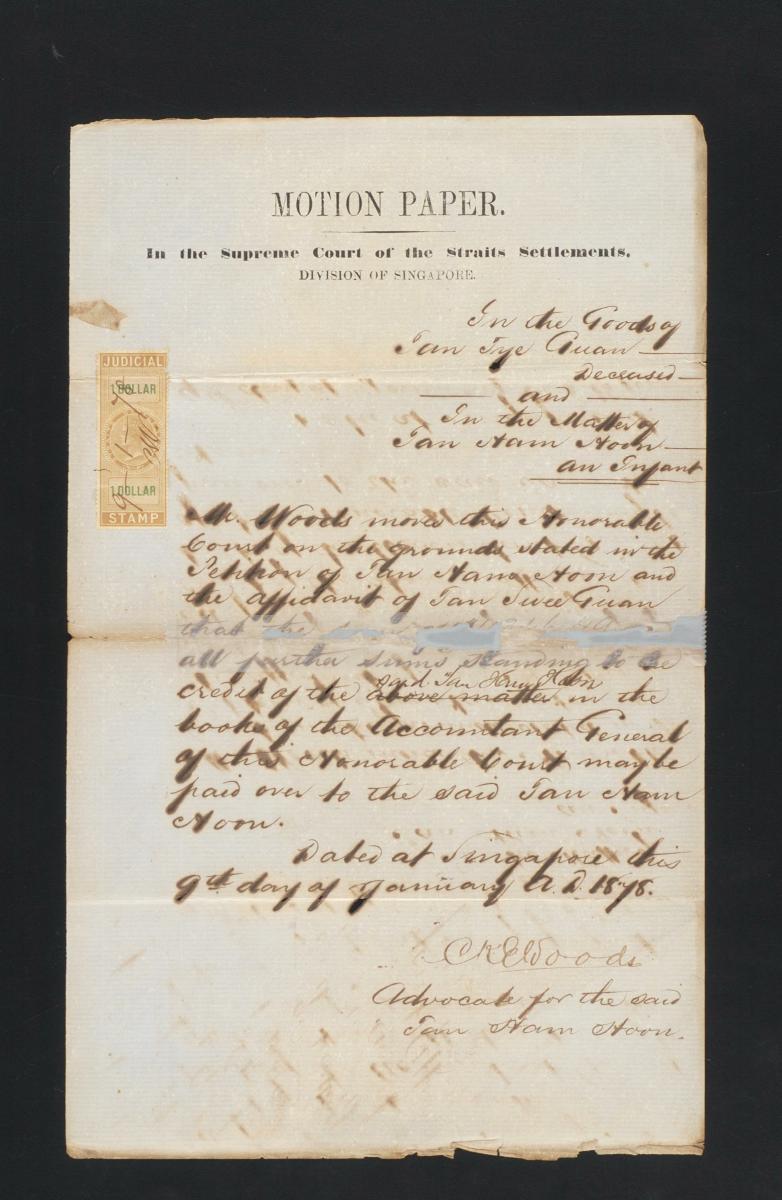 MOTION PAPER.
In the Supreme Court of the Straits Settlements,
DIVISION OF SINGAPORE.
In the Goods of
Tan Tye Guan
Deceased
and
In the Matter of
Tan Nam Hoon
an Infant
JUDICIAL
1 DOLLAR
9-1-78
1 DOLLAR
STAMP
Mr. Woods moves this Honorable
Court on the grounds stated in the
Petition of Tan Nam Hoon and
the affidavit of Tan Swee Guan
that the
all further sums standing to the
said Tan Hoon
credit of the above matter in the
books of the Accountant General
of this Honorable Court may be
paid over to the said Tan Nam
Hoon.
Dated at Singapore this
9th day of January A.D. 1878.
CKEWoods
Advocate for the said
Tan Nam Hoon.